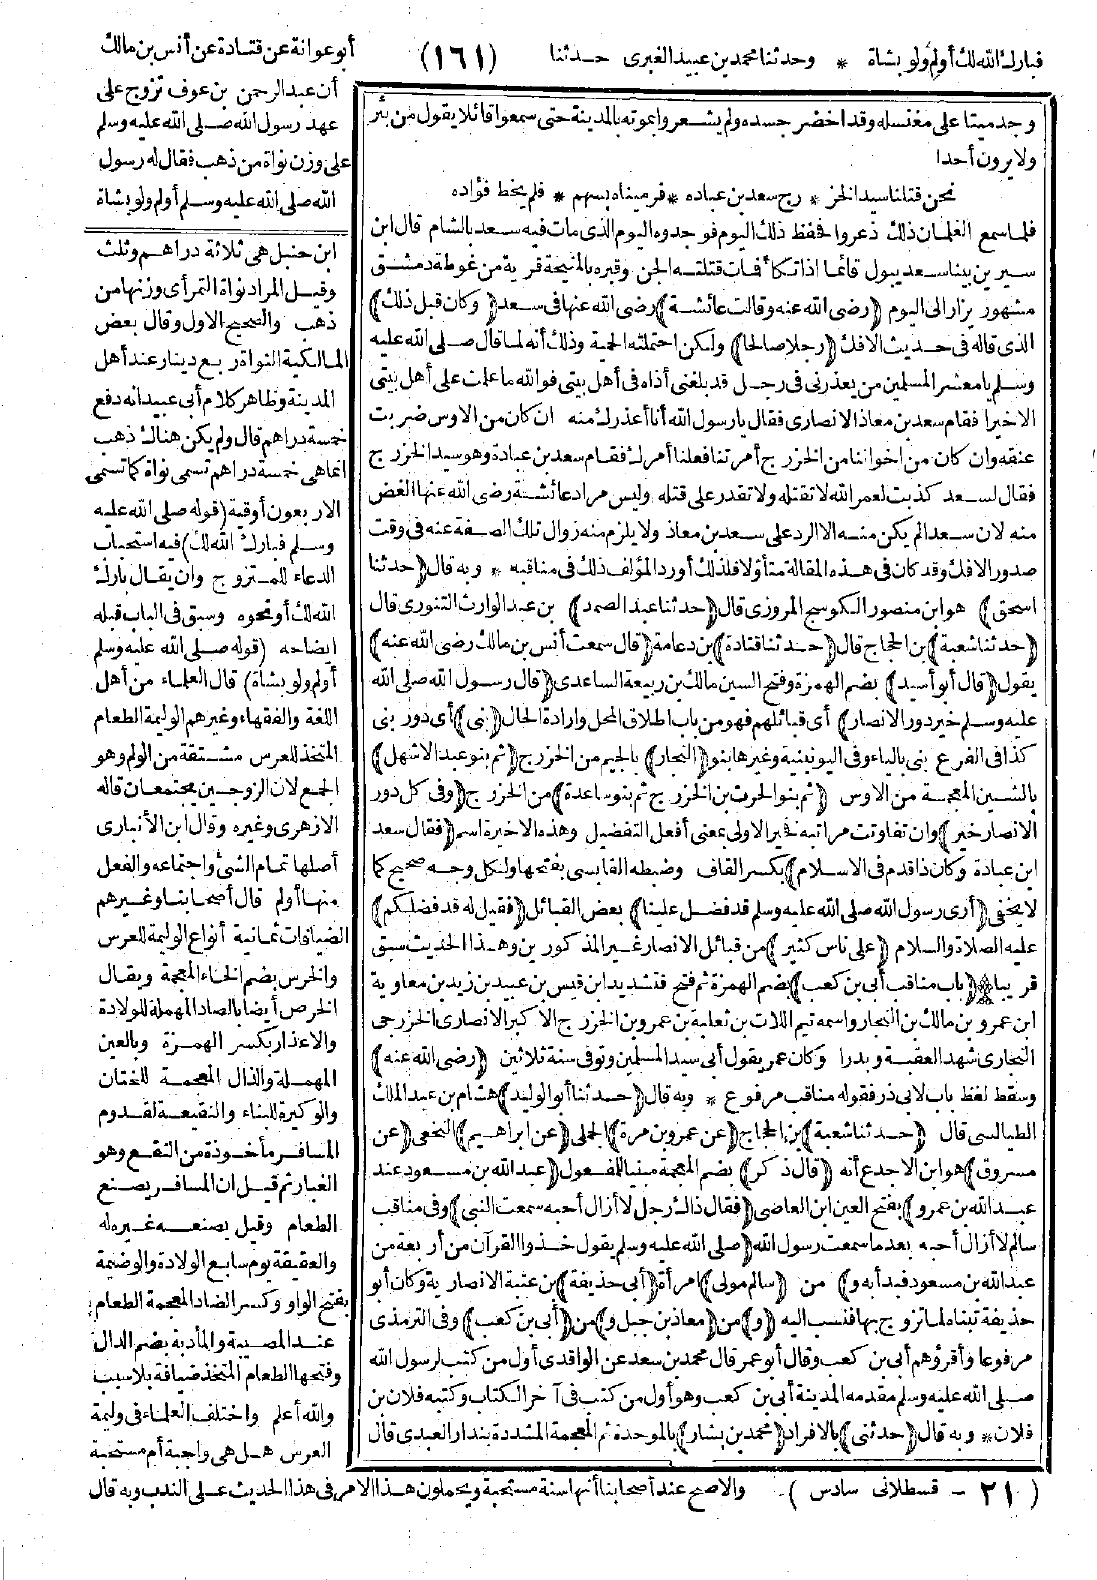 فبارك الله لك أولم ولو بشاة * وحدثنا محمد بن عبيد الغبرى حدثنا
(١٦١)
أبو عوانة عن قتادة عن أنس بن مالك
أن عبد الرحمن بن عوف تزوج على
عهد رسول الله صلى الله عليه وسلم
على وزن نواة من ذهب فقال له رسول
الله صلى الله عليه وسلم أولم ولو بشاة
وجد ميتا على مغتسله وقد اخضر جسده ولم يشعروا بموته بالمدينة حتى سمعوا قائلا يقول من بئر
ولا يرون أحدا
نحن قتلنا سيد الخز * رج سعد بن عباده * فرميناه بسهم * فلم يخط فؤاده
فلما سمع الغلمان ذلك ذعروا فحفظ ذلك اليوم فوجدوه اليوم الذى مات فيه سعد بالشام قال ابن
سيرين بينا سعد يبول قائما اذ اتكأ فمات قتلته الجن وقبره بالمنيحة قرية من غوطة دمشق
مشهور يزار الى اليوم (رضى الله عنه وقالت عائشة) رضى الله عنها فى سعد (وكان قبل ذلك)
الذى قاله فى حديث الافك (رجلا صالحا) ولكن احتملته الحمية وذلك أنه لما قال صلى الله عليه
وسلم يا معشر المسلمين من يعذرنى فى رجل قد بلغنى أذاه فى أهل بيتى فوالله ما علمت على أهل بيتى
الا خيرا فقام سعد بن معاذ الانصارى فقال يا رسول الله أنا أعذرك منه ان كان من الاوس ضربت
عنقه وان كان من اخواننا من الخزرج أمرتنا ففعلنا أمرك فقام سعد بن عبادة وهو سيد الخزرج
فقال لسعد كذبت لعمر الله لا تقتله ولا تقدر على قتله وليس مراد عائشة رضى الله عنها الغض
منه لان سعدا لم يكن منه الا الرد على سعد بن معاذ ولا يلزم منه زوال تلك الصفة عنه فى وقت
صدور الافك وقد كان فى هذه المقالة متأولا فلذلك أورد المؤلف ذلك فى مناقبه * وبه قال (حدثنا
اسحق) هو ابن منصور الكوسج المروزى قال (حدثنا عبد الصمد) بن عبد الوارث التنورى قال
(حدثنا شعبة) بن الحجاج قال (حدثنا قتادة) بن دعامة (قال سمعت أنس بن مالك رضى الله عنه)
يقول (قال أبو أسيد) بضم الهمزة وفتح السين مالك بن ربيعة الساعدى (قال رسول الله صلى الله
عليه وسلم خير دور الانصار) أى قبائلهم فهو من باب اطلاق المحل وارادة الحال (بنى) أى دور بنى
كذا فى الفرع بنى بالياء وفى اليونينية وغيرها بنو (النجار) بالجيم من الخزرج (ثم بنو عبد الاشهل)
بالشين المعجمة من الاوس (ثم بنو الحرث بن الخزرج ثم بنو ساعدة) من الخزرج (وفى كل دور
الانصار خير) وان تفاوتت مراتبه فخير الاولى بمعنى أفعل التفضيل وهذه الاخيرة اسم (فقال سعد
ابن عبادة وكان ذا قدم فى الاسلام) بكسر القاف وضبطه القابسى بفتحها ولكل وجه صحيح كما
لا يخفى (أرى رسول الله صلى الله عليه وسلم قد فضل علينا) بعض القبائل (فقيل له قد فضلكم)
عليه الصلاة والسلام (على ناس كثير) من قبائل الانصار غير المذكورين وهذا الحديث سبق
قريبا (باب مناقب أبى بن كعب) بضم الهمزة ثم فتح فتشديد ابن قيس بن عبيد بن زيد بن معاوية
ابن عمرو بن مالك بن النجار واسمه تيم اللات بن ثعلبة بن عمرو بن الخزرج الاكبر الانصارى الخزرجى
النجارى شهد العقبة وبدرا وكان عمر يقول أبى سيد المسلمين وتوفى سنة ثلاثين (رضى الله عنه)
وسقط لفظ باب لابى ذر فقوله مناقب مرفوع * وبه قال (حدثنا أبو الوليد) هشام بن عبد الملك
الطيالسى قال (حدثنا شعبة) بن الحجاج (عن عمرو بن مرة) الجملى (عن ابراهيم) النخعى (عن
مسروق) هو ابن الاجدع أنه (قال ذكر) بضم المعجمة مبنيا للمفعول (عبد الله بن مسعود عند
عبد الله بن عمرو) بفتح العين ابن العاصى (فقال ذاك رجل لا أزال أحبه سمعت النبى) وفى مناقب
سالم لا أزال أحبه بعد ما سمعت رسول الله (صلى الله عليه وسلم يقول خذوا القرآن من أربعة من
عبد الله بن مسعود فبدأ به و) من (سالم مولى) امرأة (أبى حذيفة) بن عتبة الانصارية وكان أبو
حذيفة تبناه لما تزوج بها فنسب اليه (و) من (معاذ بن جبل و) من (أبى بن كعب) وفى الترمذى
مرفوعا وأقرؤهم أبى بن كعب وقال أبو عمر قال محمد بن سعد عن الواقدى أول من كتب لرسول الله
صلى الله عليه وسلم مقدمه المدينة أبى بن كعب وهو أول من كتب فى آخر الكتاب وكتبه فلان بن
فلان * وبه قال (حدثنى) بالافراد (محمد بن بشار) بالموحدة ثم المعجمة المشددة بندار العبدى قال
ابن حنبل هى ثلاثة دراهم وثلث
وقيل المراد نواة التمر أى وزنها من
ذهب والصحيح الاول وقال بعض
المالكية النواة ربع دينار عند أهل
المدينة وظاهر كلام أبى عبيد انه دفع
خمسة دراهم قال ولم يكن هناك ذهب
انما هى خمسة دراهم تسمى نواة كما تسمى
الاربعون أوقية (قوله صلى الله عليه
وسلم فبارك الله لك) فيه استحباب
الدعاء للمتزوج وان يقال بارك
الله لك أو نحوه وسبق فى الباب قبله
ايضاحه (قوله صلى الله عليه وسلم
أولم ولو بشاة) قال العلماء من أهل
اللغة والفقهاء وغيرهم الوليمة الطعام
المتخذ للعرس مشتقة من الولم وهو
الجمع لان الزوجين يجتمعان قاله
الازهرى وغيره وقال ابن الأنبارى
أصلها تمام الشئ واجتماعه والفعل
منها أولم قال أصحابنا وغيرهم
الضيافات ثمانية أنواع الوليمة للعرس
والخرس بضم الخاء المعجمة ويقال
الخرص أيضا بالصاد المهملة للولادة
والاعذار بكسر الهمزة وبالعين
المهملة والذال المعجمة للختان
والوكيرة للبناء والنقيعة لقدوم
المسافر مأخوذة من النقع وهو
الغبار ثم قيل ان المسافر يصنع
الطعام وقيل يصنعه غيره له
والعقيقة يوم سابع الولادة والوضيمة
بفتح الواو وكسر الضاد المعجمة الطعام
عند المصيبة والمأدبة بضم الدال
وفتحها الطعام المتخذ ضيافة بلا سبب
والله أعلم واختلف العلماء فى وليمة
العرس هل هى واجبة أم مستحبة
والاصح عند أصحابنا أنها سنة مستحبة ويحملون هذا الامر فى هذا الحديث على الندب وبه قال
(٢١ - قسطلانى سادس)